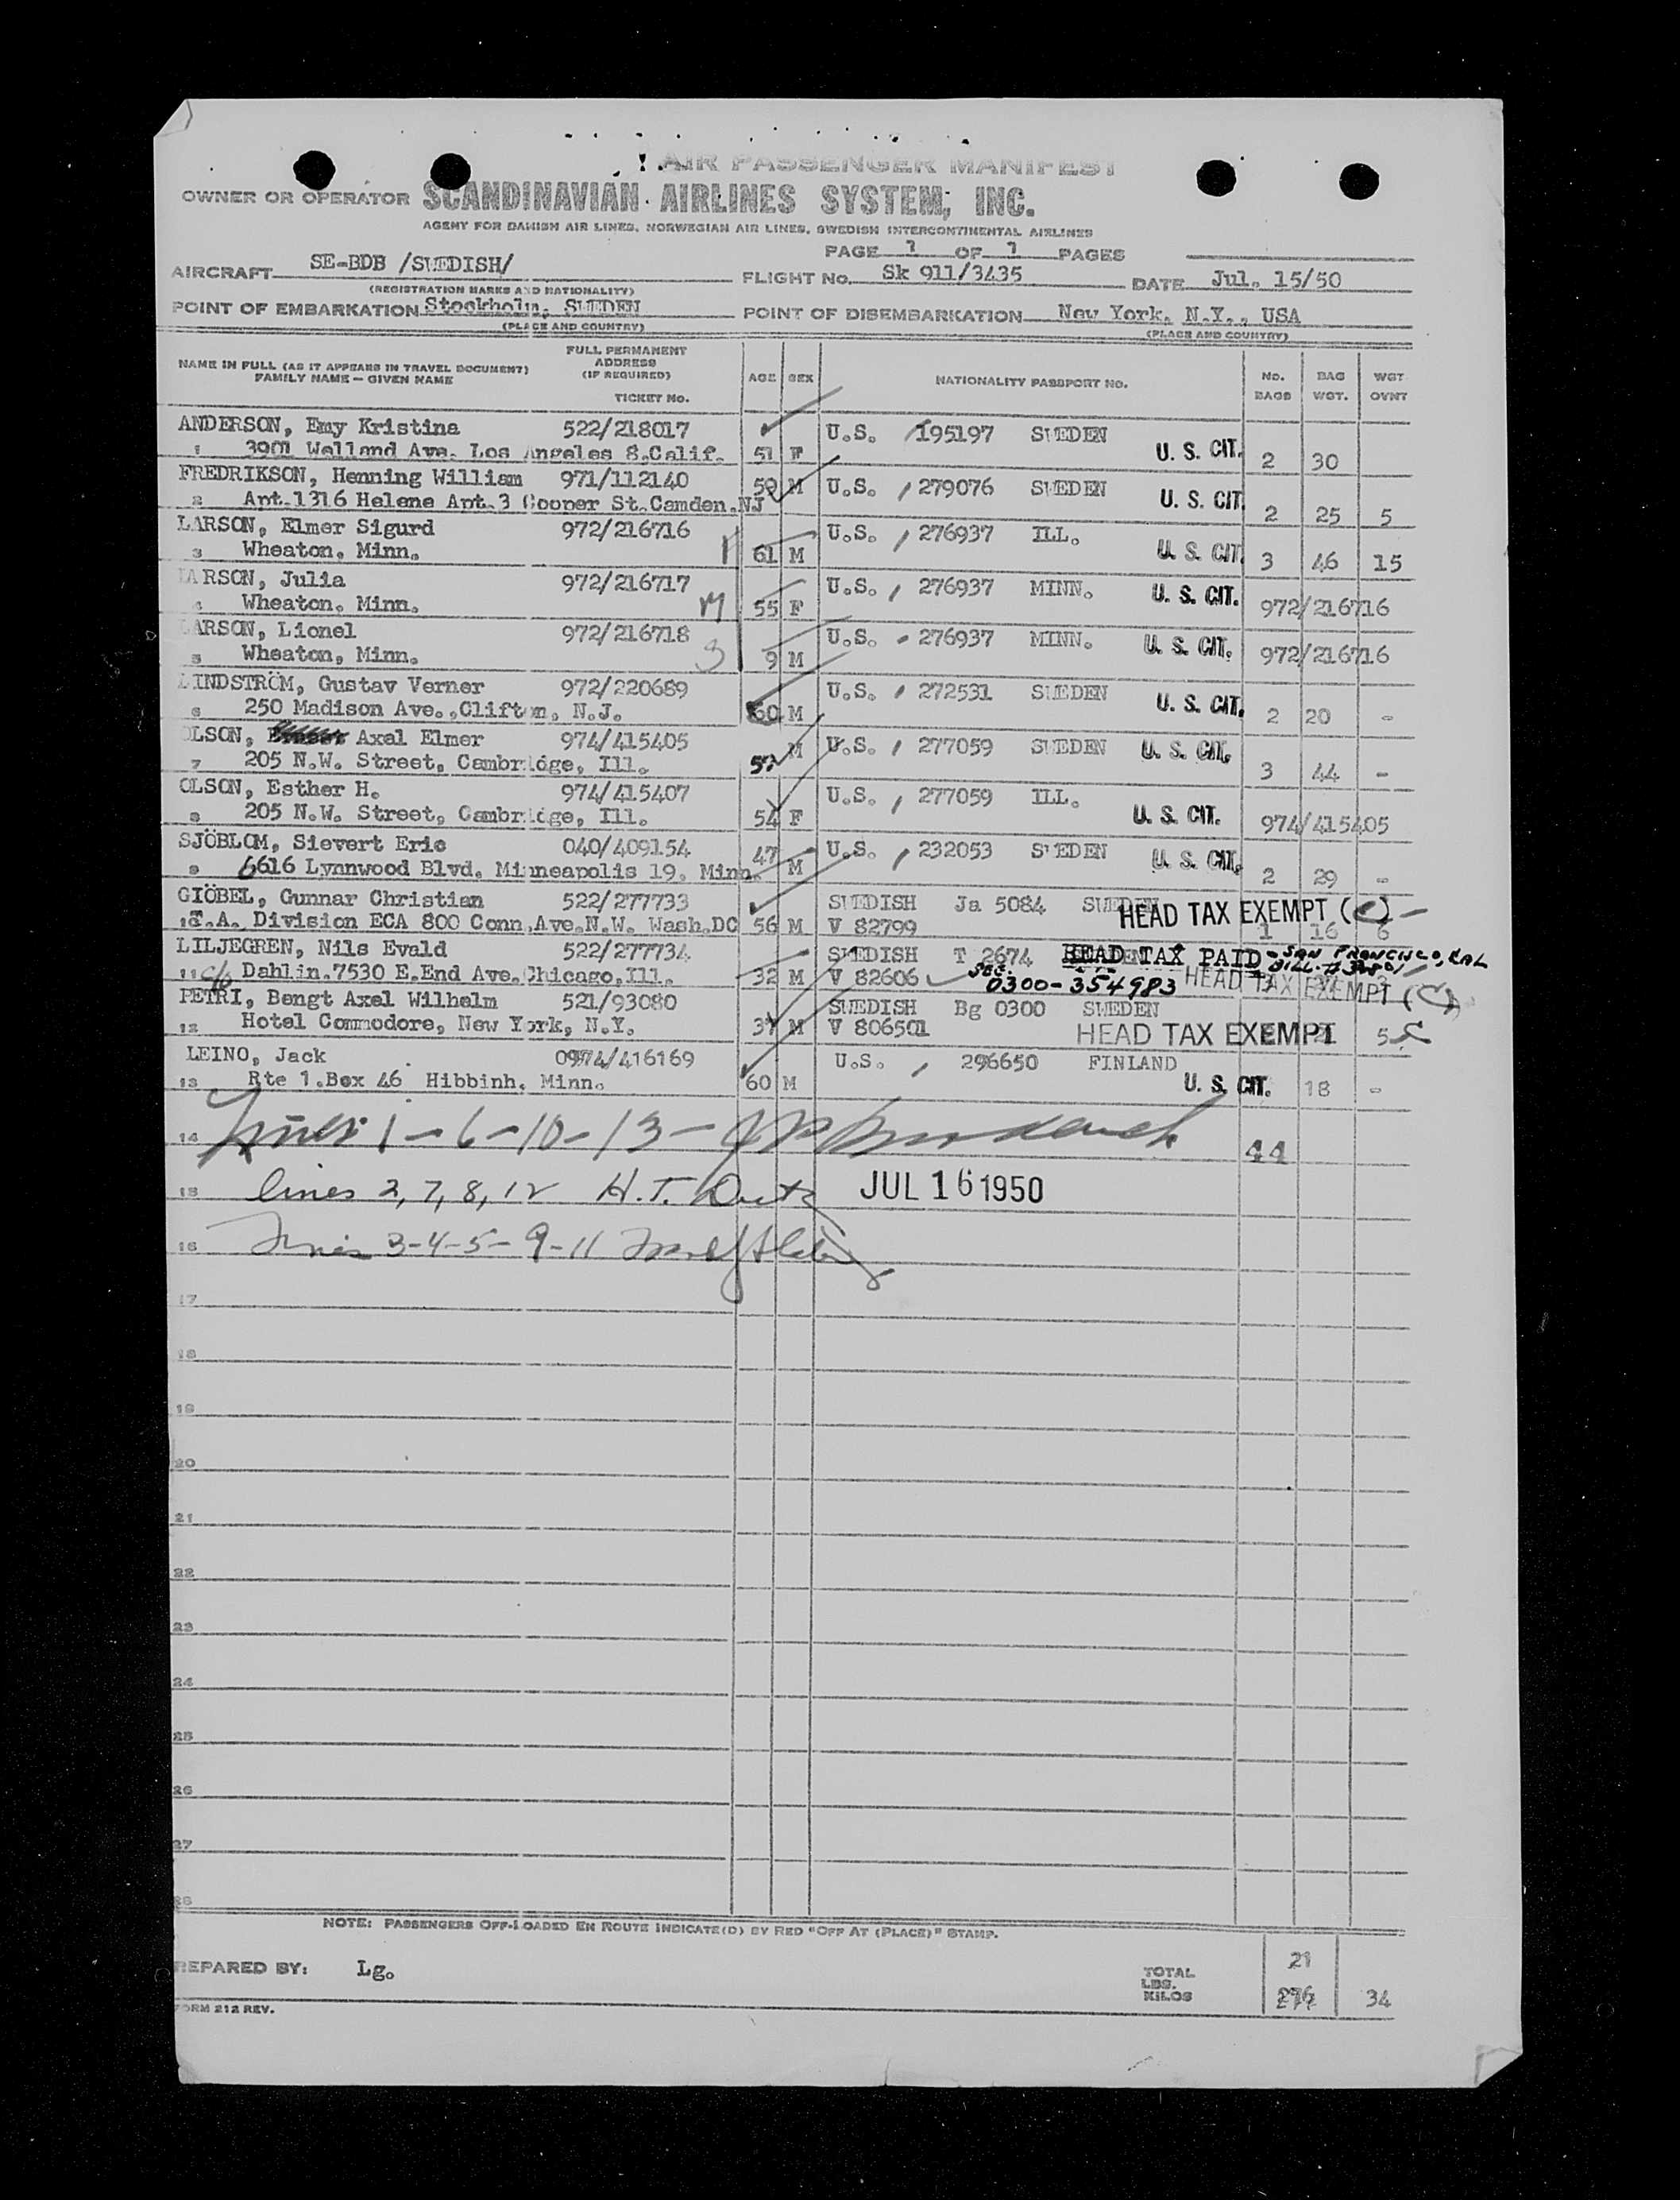 AIR PASSENGER MANIFEST
OWNER OR OPERATOR SCANDINAVIAN AIRLINES SYSTEM, INC.
AGENT FOR DANISH AIR LINES, NORWEGIAN AIR LINES, SWEDISH INTERCONTINENTAL AIRLINES
PAGE 1 OF 1 PAGES
AIRCRAFT SE-BDB /SWEDISH/ FLIGHT No. Sk 911/3435 DATE Jul. 15/50
(REGISTRATION MARKS AND NATIONALITY)
POINT OF EMBARKATION Stockholm, SWEDEN POINT OF DISEMBARKATION New York, N.Y., USA
(PLACE AND COUNTRY) (PLACE AND COUNTRY)
NAME IN FULL (AS IT APPEARS IN TRAVEL DOCUMENT) FAMILY NAME – GIVEN NAME
FULL PERMANENT ADDRESS (IF REQUIRED) TICKET No.
AGE SEX NATIONALITY PASSPORT NO. No. BAGS BAG WGT. WGT OVNT
ANDERSON, Emy Kristina 522/218017 U.S. 195197 SWEDEN
1 3901 Welland Ave. Los Angeles 8.Calif. 51 F U. S. CIT. 2 30
FREDRIKSON, Henning William 971/112140 59 M U.S. 279076 SWEDEN
2 Apt.1316 Helene Apt.3 Cooper St.Camden.NJ U. S. CIT. 2 25 5
LARSON, Elmer Sigurd 972/216716 U.S. 276937 ILL.
3 Wheaton, Minn. 61 M U. S. CIT. 3 46 15
LARSON, Julia 972/216717 U.S. 276937 MINN.
4 Wheaton, Minn. 55 F U. S. CIT. 972/216716
LARSON, Lionel 972/216718 U.S. 276937 MINN.
5 Wheaton, Minn. 9 M U. S. CIT. 972/216716
LINDSTRÖM, Gustav Verner 972/220689 U.S. 272531 SWEDEN
6 250 Madison Ave.,Clifton, N.J. 60 M U. S. CIT. 2 20 -
OLSON, Axel Elmer 974/415405 M U.S. 277059 SWEDEN U. S. CIT.
7 205 N.W. Street, Cambridge, Ill. 3 44 -
OLSON, Esther H. 974/415407 U.S. 277059 ILL.
8 205 N.W. Street, Cambridge, Ill. 54 F U. S. CIT. 974/415405
SJÖBLOM, Sievert Eric 040/409154 47 U.S. 232053 SWEDEN
9 6616 Lynnwood Blvd. Minneapolis 19. Minn. M U. S. CIT. 2 29 -
GIÖBEL, Gunnar Christian 522/277733 SWEDISH Ja 5084 SWEDEN HEAD TAX EXEMPT (C) –
10 .A. Division ECA 800 Conn.Ave.N.W. Wash.DC 56 M V 82799 1 16 6
LILJEGREN, Nils Evald 522/277734 SWEDISH T 2674 HEAD TAX PAID - SAN FRANCISCO, CAL
11 c/o Dahlin.7530 E.End Ave.Chicago.Ill. 32 M V 82606 SEC. 0300-354983 HEAD TAX EXEMPT (C)
PETRI, Bengt Axel Wilhelm 521/93080 SWEDISH Bg 0300 SWEDEN
12 Hotel Commodore, New York, N.Y. 37 M V 806501 HEAD TAX EXEMPT 5
LEINO, Jack 0974/416169 U.S. 296650 FINLAND
13 Rte 1.Box 46 Hibbinh. Minn. 60 M U. S. CIT. 18 -
14 lines 1-6-10-13- 44
15 lines 2, 7, 8, 12 H.T. JUL 16 1950
16 lines 3-4-5-9-11
17
18
19
20
21
22
23
24
25
26
27
28
NOTE: PASSENGERS OFF-LOADED EN ROUTE INDICATE(D) BY RED "OFF AT (PLACE)" STAMP.
REPARED BY: Lg. TOTAL 21
LBS.
KILOS 34
FORM 212 REV.